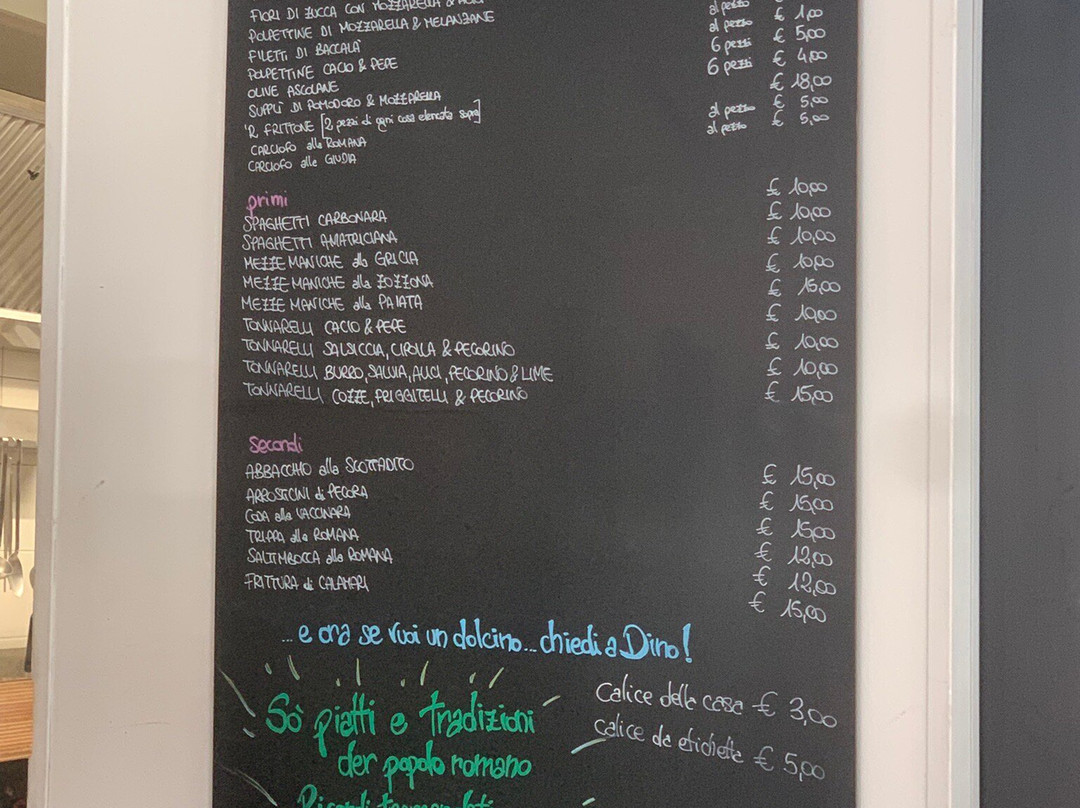 FIORI DI ZUCCA CON MOZZARELLA &
POLPETTINE DI MOZZARELLA & MELANZANE
FILETTI DI BACCALA' al pezzo
POLPETTINE CACIO & PEPE al pezzo € 1,00
OLIVE ASCOLANE 6 pezzi € 5,00
SUPPLI' DI POMODORO & MOZZARELLA 6 pezzi € 4,00
'R FRITTONE [2 pezzi di ogni cosa elencata sopra] € 18,00
CARCIOFO alla ROMANA al pezzo € 5,00
CARCIOFO alla GIUDIA al pezzo € 5,00
primi
SPAGHETTI CARBONARA € 10,00
SPAGHETTI AMATRICIANA € 10,00
MEZZE MANICHE alla GRICIA € 10,00
MEZZE MANICHE alla ZOZZONA € 10,00
MEZZE MANICHE alla PAIATA € 15,00
TONNARELLI CACIO & PEPE € 10,00
TONNARELLI SALSICCIA, CIPOLLA & PECORINO € 10,00
TONNARELLI BURRO, SALVIA, ALICI, PECORINO & LIME € 10,00
TONNARELLI COZZE, FRIGGITELLI & PECORINO € 15,00
secondi
ABBACCHIO alla SCOTTADITO € 15,00
ARROSTICINI di PECORA € 15,00
CODA alla VACCINARA € 15,00
TRIPPA alla ROMANA € 12,00
SALTIMBOCCA alla ROMANA € 12,00
FRITTURA di CALAMARI € 15,00
... e ora se vuoi un dolcino... chiedi a Dino!
Calice della casa € 3,00
calice da etichetta € 5,00
Sò piatti e tradizioni
der popolo romano